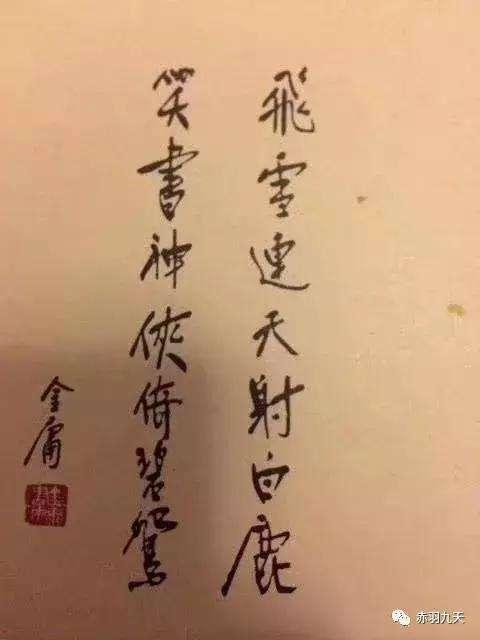 飛雪連天射白鹿
笑書神俠倚碧鴛
金庸
赤羽九天